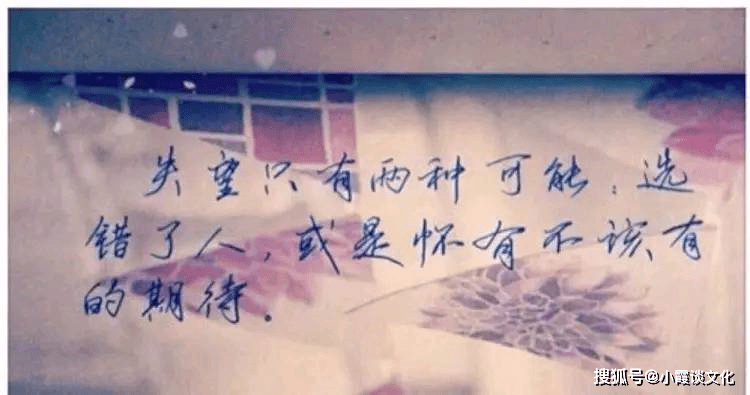 失望只有两种可能：选
错了人，或是怀有不该有
的期待。
搜狐号@小霞谈文化